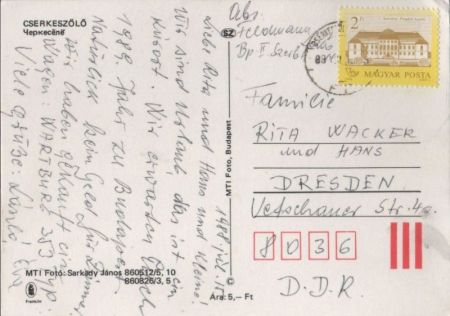 CSERKESZŐLŐ
Черкесёлё
SZ
Abs.
Feldmann
Bp II
Liebe Rita und Hans und Kleine!
Wir sind Urlaub das ist ein
Kurort. Wir erwarten Euch
1989. Fahrt zu Budapest.
Natürlich kein Geld für Zimmer.
Wir haben gekauft ein
Wagen: WARTBURG 353 Typ.
Viele Grüße: László
MTI Foto, Budapest
MTI Fotó: Sarkady János 860512/5, 10
860826/3, 5
Ára: 5,– Ft
2 Ft
MAGYAR POSTA
Familie
RITA WACKER
und HANS
DRESDEN
Vetschauer Str. 4a
8036
D.D.R.